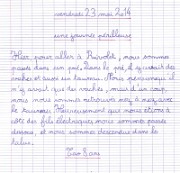 vendredi 23 mai 2014
une journée périlleuse
Hier, pour aller à , nous sommes
passés dans un pré. Dans le pré, il y avait des
vaches et aussi un taureau. Nous pensions qu'il
n'y avait que des vaches, mais d'un coup,
nous nous sommes retrouvés nez à nez avec
le taureau. Heureusement que nous étions à
côté des fils électriques nous sommes passés
dessous, et nous sommes descendus dans le
talus.
8 ans